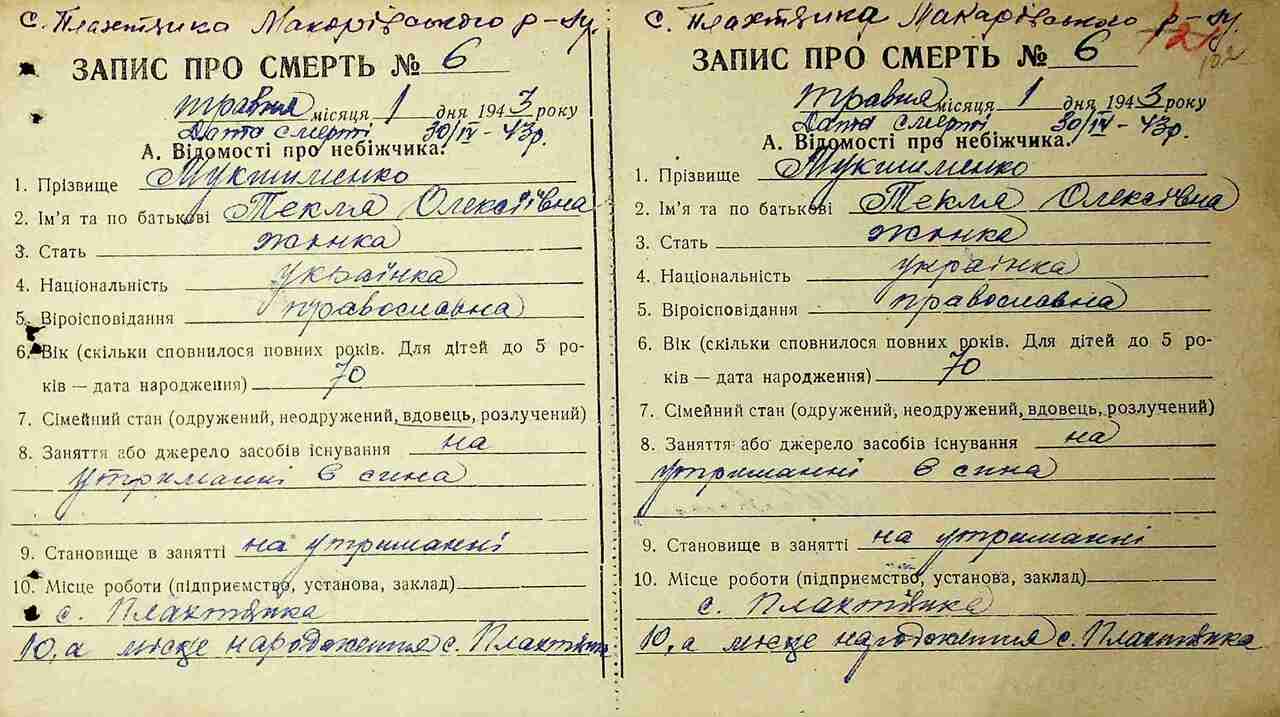 с. Плахтянка Макарівського р-ну.
ЗАПИС ПРО СМЕРТЬ № 6
травня місяця 1 дня 1943 року
Дата смерті 30/IV - 43 р.
А. Відомості про небіжчика.
1. Прізвище Мукшименко
2. Ім'я та по батькові Текля Олексіївна
3. Стать жінка
4. Національність українка
5. Віроісповідання православна
6. Вік (скільки сповнилося повних років. Для дітей до 5 ро-
ків — дата народження) 70
7. Сімейний стан (одружений, неодружений, вдовець, розлучений)
8. Заняття або джерело засобів існування на
утриманні в сина
9. Становище в занятті на утриманні
10. Місце роботи (підприємство, установа, заклад)
с. Плахтянка
10, а місце народження с. Плахтянка
с. Плахтянка Макарівського р-ну.
121
102
ЗАПИС ПРО СМЕРТЬ № 6
травня місяця 1 дня 1943 року
Дата смерті 30/IV - 43 р.
А. Відомості про небіжчика.
1. Прізвище Мукшименко
2. Ім'я та по батькові Текля Олексіївна
3. Стать жінка
4. Національність українка
5. Віроісповідання православна
6. Вік (скільки сповнилося повних років. Для дітей до 5 ро-
ків — дата народження) 70
7. Сімейний стан (одружений, неодружений, вдовець, розлучений)
8. Заняття або джерело засобів існування на
утриманні в сина
9. Становище в занятті на утриманні
10. Місце роботи (підприємство, установа, заклад)
с. Плахтянка
10, а місце народження с. Плахтянка